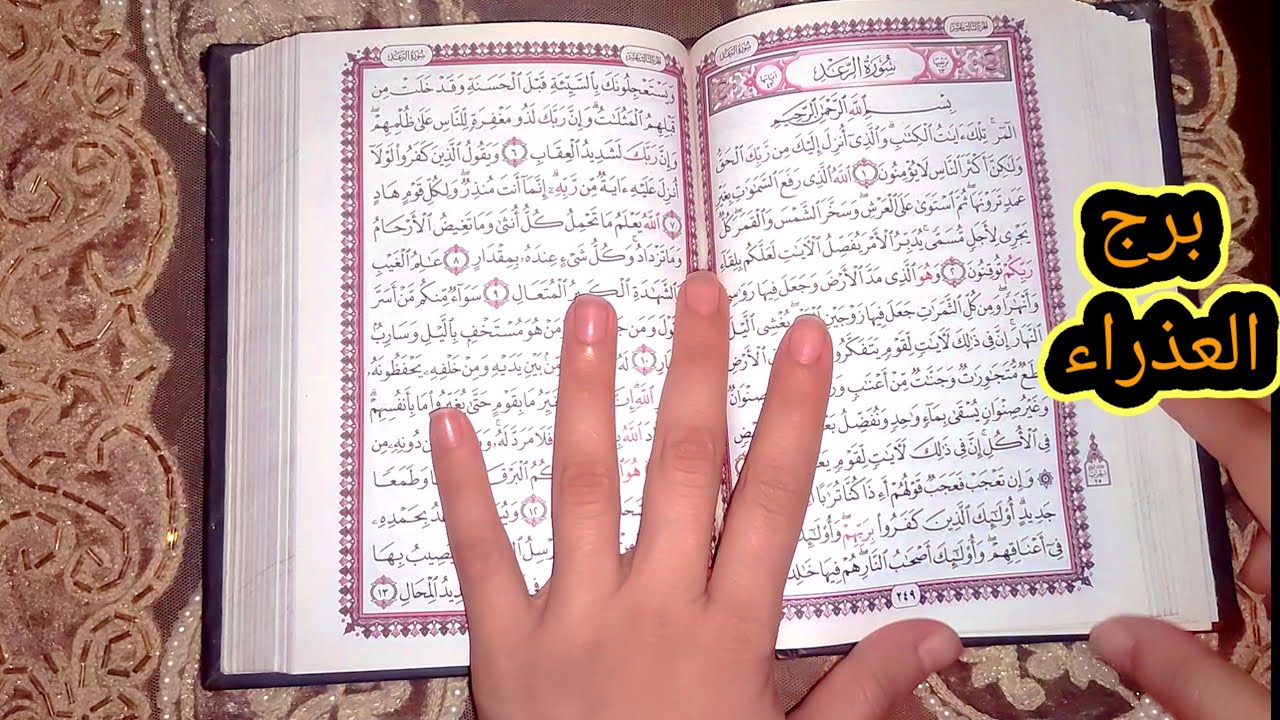 الجزء الثالث عشر
سُورَةُ الرَّعْدِ
سُورَةُ الرَّعْدِ
بِسْمِ ٱللَّهِ ٱلرَّحْمَٰنِ ٱلرَّحِيمِ
الٓمٓر ۚ تِلْكَ ءَايَٰتُ ٱلْكِتَٰبِ ۗ وَٱلَّذِىٓ أُنزِلَ إِلَيْكَ مِن رَّبِّكَ ٱلْحَقُّ
وَلَٰكِنَّ أَكْثَرَ ٱلنَّاسِ لَا يُؤْمِنُونَ ١ ٱللَّهُ ٱلَّذِى رَفَعَ ٱلسَّمَٰوَٰتِ بِغَيْرِ
عَمَدٍ تَرَوْنَهَا ۖ ثُمَّ ٱسْتَوَىٰ عَلَى ٱلْعَرْشِ ۖ وَسَخَّرَ ٱلشَّمْسَ وَٱلْقَمَرَ ۖ كُلٌّ
يَجْرِى لِأَجَلٍ مُّسَمًّى ۚ يُدَبِّرُ ٱلْأَمْرَ يُفَصِّلُ ٱلْءَايَٰتِ لَعَلَّكُم بِلِقَآءِ
رَبِّكُمْ تُوقِنُونَ ٢ وَهُوَ ٱلَّذِى مَدَّ ٱلْأَرْضَ وَجَعَلَ فِيهَا رَوَٰسِىَ
وَأَنْهَٰرًا ۖ وَمِن كُلِّ ٱلثَّمَرَٰتِ جَعَلَ فِيهَا زَوْجَيْنِ يُغْشِى ٱلَّيْلَ
ٱلنَّهَارَ ۚ إِنَّ فِى ذَٰلِكَ لَءَايَٰتٍ لِّقَوْمٍ يَتَفَكَّرُونَ ٱلْأَرْضِ
قِطَعٌ مُّتَجَٰوِرَٰتٌ وَجَنَّٰتٌ مِّنْ أَعْنَٰبٍ صِنْوَانٌ
وَغَيْرُ صِنْوَانٍ يُسْقَىٰ بِمَآءٍ وَٰحِدٍ وَنُفَضِّلُ
فِى ٱلْأُكُلِ ۚ إِنَّ فِى ذَٰلِكَ لَءَايَٰتٍ لِّقَوْمٍ
وَإِن تَعْجَبْ فَعَجَبٌ قَوْلُهُمْ أَءِذَا كُنَّا تُرَٰبًا
جَدِيدٍ ۗ أُو۟لَٰٓئِكَ ٱلَّذِينَ كَفَرُوا۟ بِرَبِّهِمْ ۖ وَأُو۟لَٰٓئِكَ
فِىٓ أَعْنَاقِهِمْ ۖ وَأُو۟لَٰٓئِكَ أَصْحَٰبُ ٱلنَّارِ ۖ هُمْ فِيهَا
٢٤٩
الجزء الثالث عشر
سُورَةُ الرَّعْدِ
وَيَسْتَعْجِلُونَكَ بِٱلسَّيِّئَةِ قَبْلَ ٱلْحَسَنَةِ وَقَدْ خَلَتْ مِن
قَبْلِهِمُ ٱلْمَثُلَٰتُ ۗ وَإِنَّ رَبَّكَ لَذُو مَغْفِرَةٍ لِّلنَّاسِ عَلَىٰ ظُلْمِهِمْ ۖ
وَإِنَّ رَبَّكَ لَشَدِيدُ ٱلْعِقَابِ ٦ وَيَقُولُ ٱلَّذِينَ كَفَرُوا۟ لَوْلَآ
أُنزِلَ عَلَيْهِ ءَايَةٌ مِّن رَّبِّهِۦٓ ۗ إِنَّمَآ أَنتَ مُنذِرٌ ۖ وَلِكُلِّ قَوْمٍ هَادٍ
٧ ٱللَّهُ يَعْلَمُ مَا تَحْمِلُ كُلُّ أُنثَىٰ وَمَا تَغِيضُ ٱلْأَرْحَامُ
وَمَا تَزْدَادُ ۖ وَكُلُّ شَىْءٍ عِندَهُۥ بِمِقْدَارٍ ٨ عَٰلِمُ ٱلْغَيْبِ
وَٱلشَّهَٰدَةِ ٱلْكَبِيرُ ٱلْمُتَعَالِ ٩ سَوَآءٌ مِّنكُم مَّنْ أَسَرَّ
ٱلْقَوْلَ وَمَن هُوَ مُسْتَخْفٍۭ بِٱلَّيْلِ وَسَارِبٌۢ
١٠ لَهُۥ مِّنۢ بَيْنِ يَدَيْهِ وَمِنْ خَلْفِهِۦ يَحْفَظُونَهُۥ
ٱللَّهِ ۗ مَا بِقَوْمٍ حَتَّىٰ يُغَيِّرُوا۟ مَا بِأَنفُسِهِمْ ۗ
ٱللَّهُ فَلَا مَرَدَّ لَهُۥ ۚ دُونِهِۦ مِن
هُوَ ٱلْبَرْقَ وَطَمَعًا
١٢ بِحَمْدِهِۦ
فَيُصِيبُ بِهَا
فِى ٱلْمِحَالِ ١٣
برج
العذراء